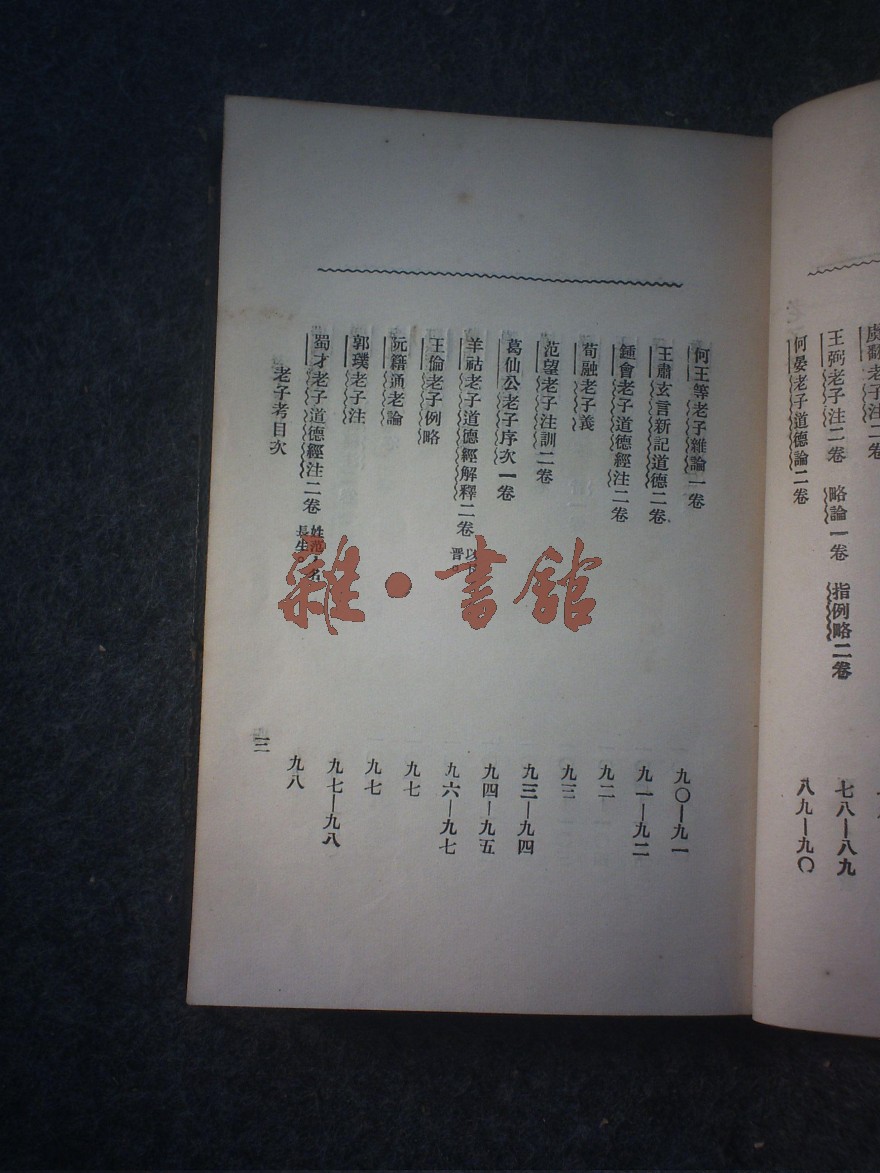 老子注二卷
王弼老子注二卷 略論一卷 指例略二卷 七八—八九
何晏老子道德論二卷 八九—九〇
何王等老子雜論一卷 九〇—九一
王肅玄言新記道德二卷 九一—九二
鍾會老子道德經注二卷 九二
荀融老子義 九三
范望老子注訓二卷 九三—九四
葛仙公老子序次一卷 九四—九五
羊祜老子道德經解釋二卷 以 晉。 九六—九七
王倫老子例略 九七
阮籍通老論 九七
郭璞老子注 九七—九八
蜀才老子道德經注二卷 姓范，名長生。 九八
老子考目次 三
雜·書館